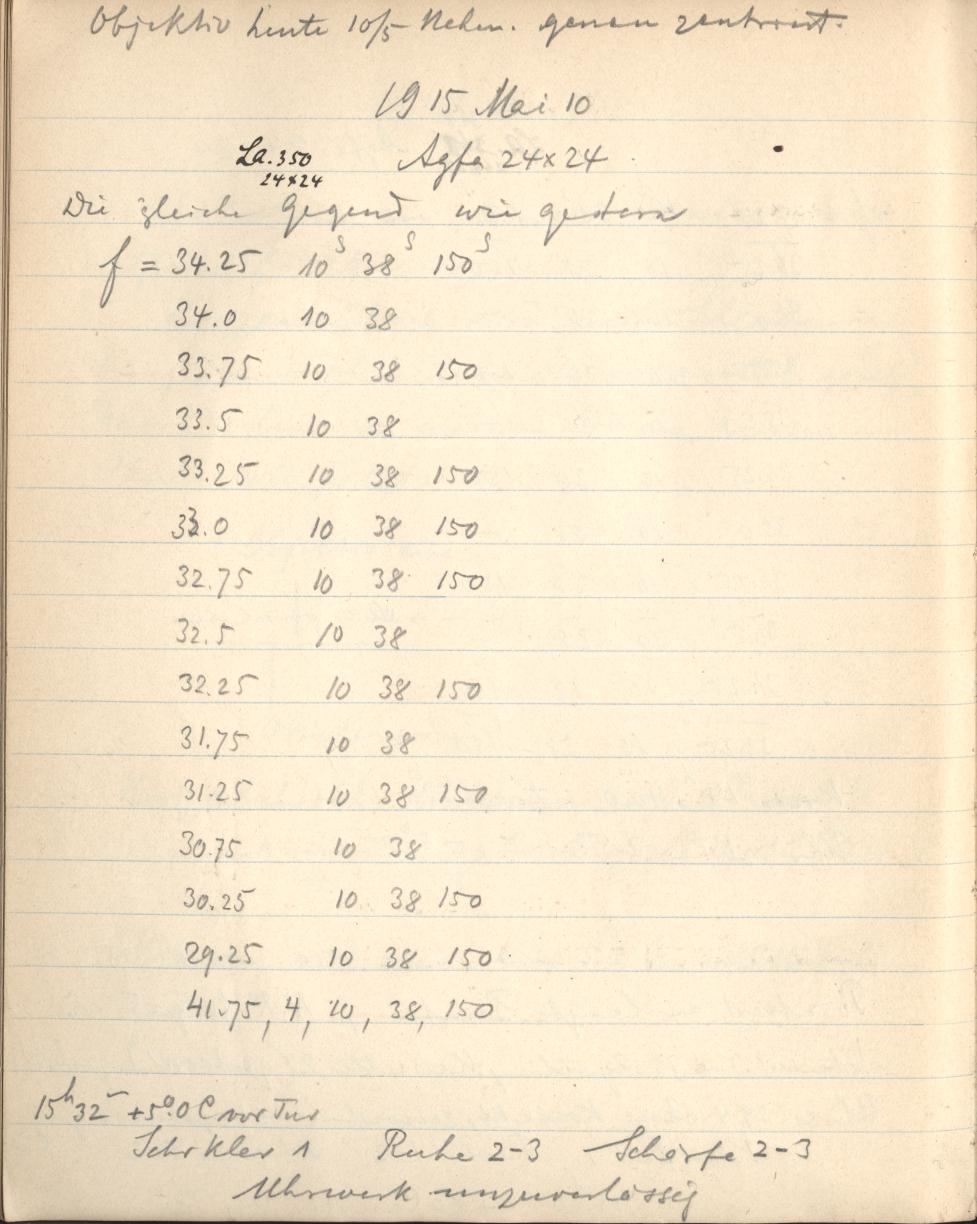 Objektiv heute 10/5 Nachm. genau zentriert.
1915 Mai 10
La. 350 Agfa 24x24
24x24
Die gleiche Gegend wie gestern
f = 34.25 10ˢ 38ˢ 150ˢ
34.0 10 38
33.75 10 38 150
33.5 10 38
33.25 10 38 150
33.0 10 38 150
32.75 10 38 150
32.5 10 38
32.25 10 38 150
31.75 10 38
31.25 10 38 150
30.75 10 38
30.25 10 38 150
29.25 10 38 150
41.75, 4, 10, 38, 150
15ʰ 32ᵐ +5°.0 C vor Tür
Sehr klar 1 Ruhe 2-3 Schärfe 2-3
Uhrwerk unzuverlässig